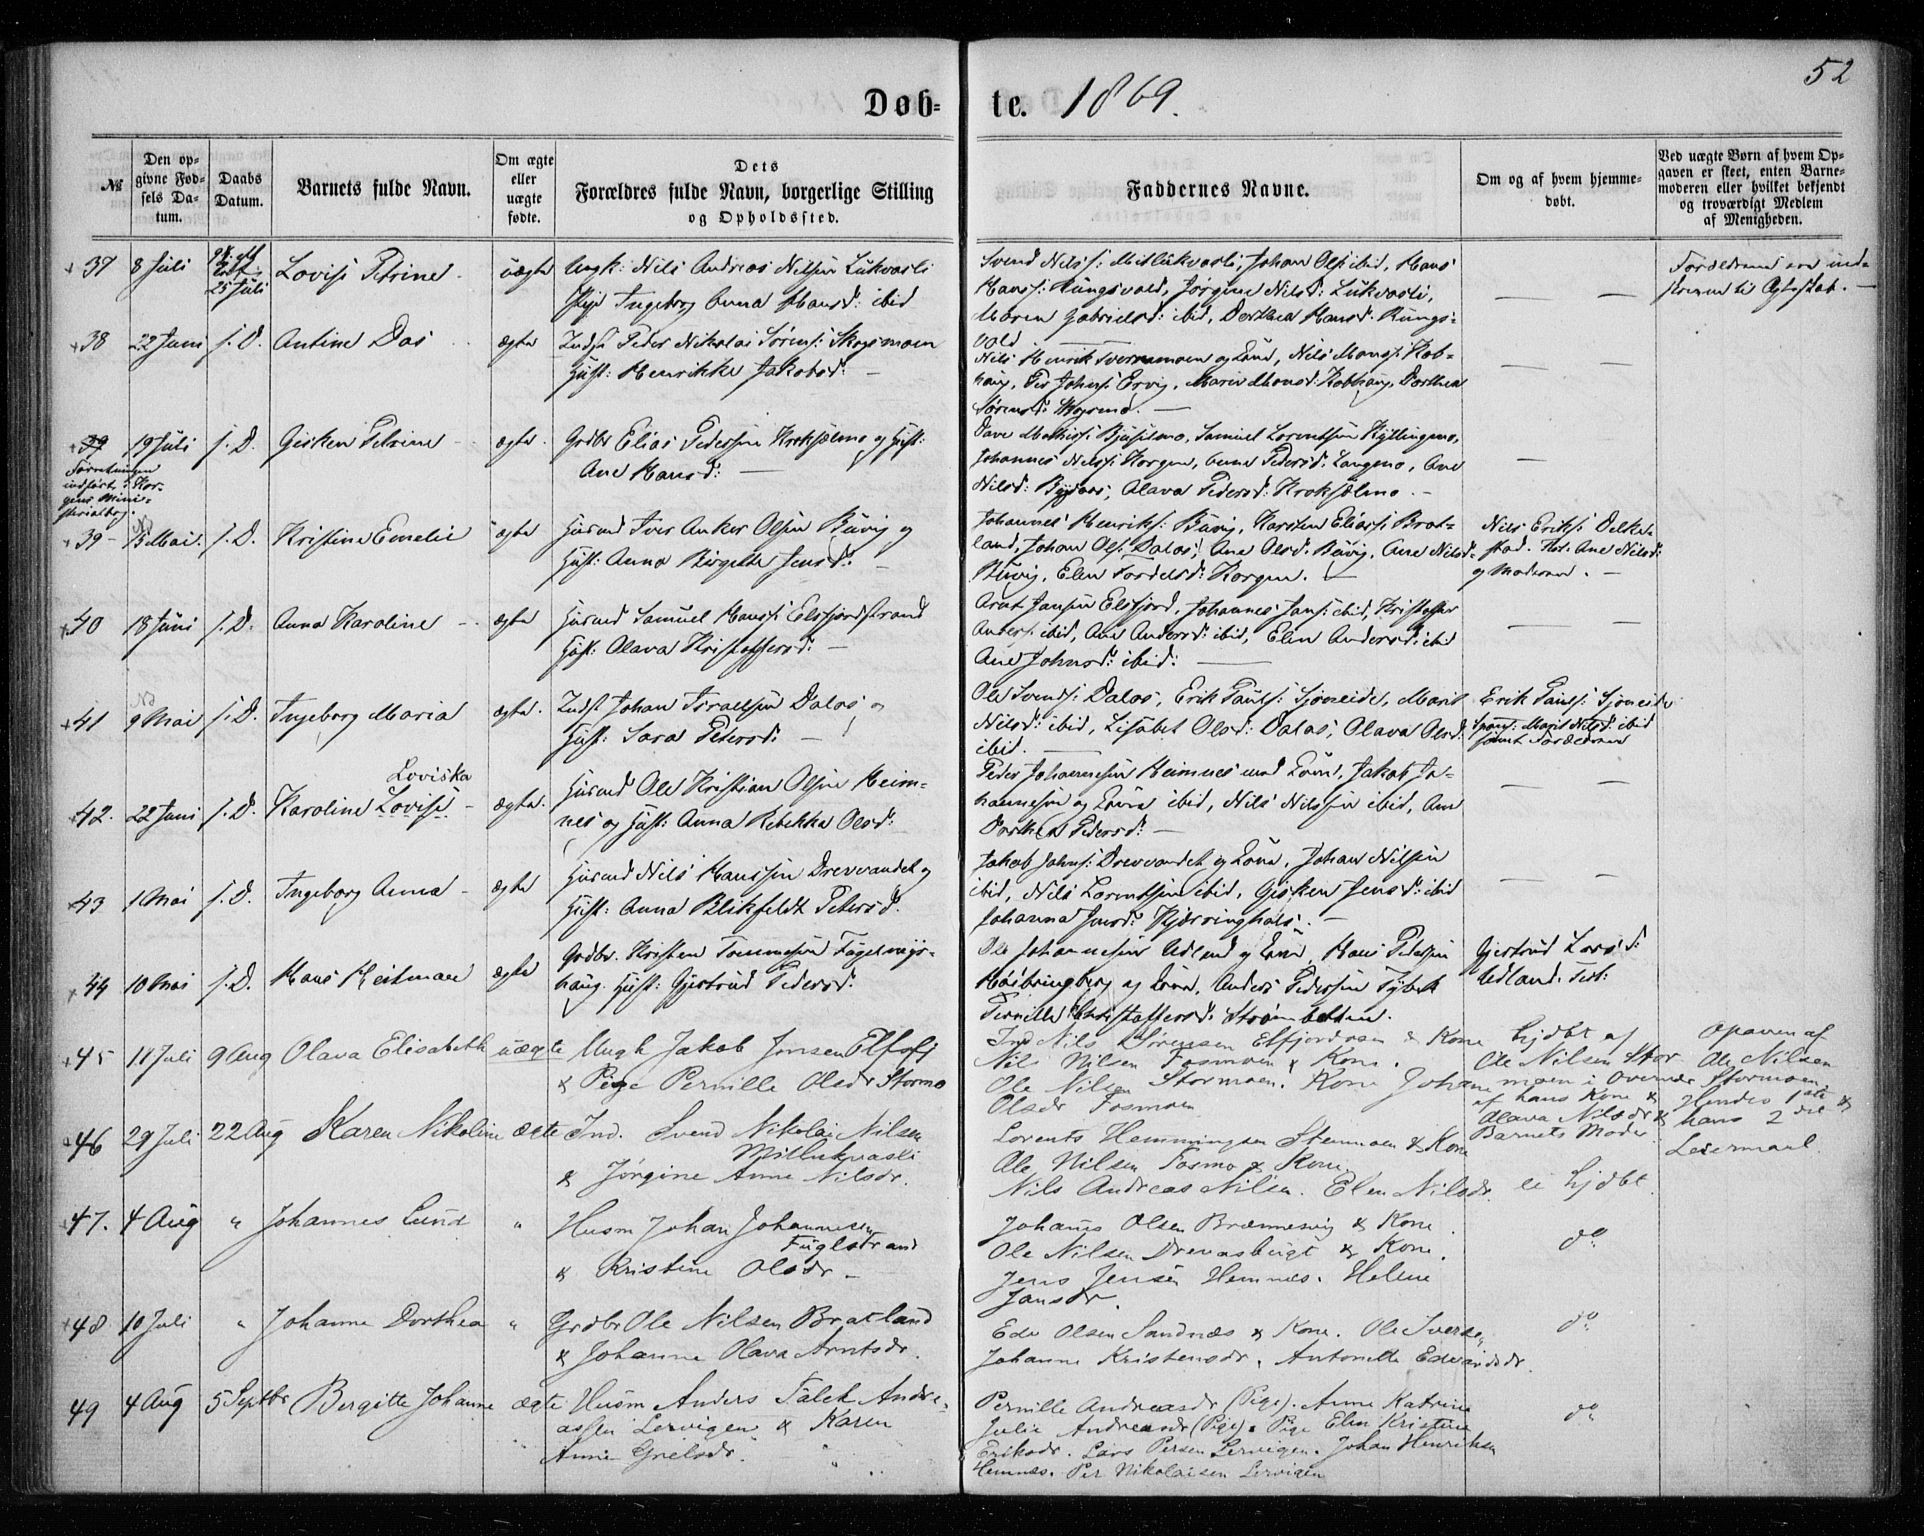 52
Døb-
te. 1869.
№
Den opgivne Fødsels Datum.
Daabs Datum.
Barnets fulde Navn.
Om ægte eller uægte fødte.
Dets Forældres fulde Navn, borgerlige Stilling og Opholdssted.
Faddernes Navne.
Om og af hvem hjemmedøbt.
Ved uægte Børn af hvem Opgaven er skeet, enten Barnemoderen eller hvilket bekjendt og troværdigt Medlem af Menigheden.
37 8 Juli 25 Juli Lovise Petrine uægte Ungk: Nils Andreas Nilsen Lukvasli
Pige Ingeborg Anna Hansd: ibid
Svend Nilss: Midtlukvasli, Johan Ols: ibid, Hans
Hanss: Rungsvold, Jørgine Nilsd: Lukvasli,
Maren Gabrielsd: ibid, Dorthea Hansd: Rungs-
vold
38 22 Juni s. D. Antine Das ægte Indst Peder Nikolai Sørens: Skogsmoen
Hust: Henrikke Jakobsd: —
Nils Henrik Sverremoen og Kone, Nils Monss: Kob-
haug, Per Johns: Ervig, Marie Monsd: Kobhaug, Dorthea
Sørensd: Skogsmo. —
39 19 Juli s. D. Gisken Petrine ægte Grdbr Elias Pedersen Kroksælmo og Hust:
Ane Hansd: —
Forretningen
indført i Kor-
gens Mini-
sterialbog.
Samuel Lorentsen Kyllingmo,
Johannes Nilss: Korgen, Anne Pedersd: Langmo, Ane
Nilsd: Olava Pedersd: Kroksælmo. —
39 15 Mai s. D. Kristine Emelie ægte Husmd Iver Anker Olsen Buvig og
Hust: Anna Birgitte Jensd: —
Johannes Henriks: Buvig, Karsten Eliass: Brat-
land, Johan Ols: Dalos, Ane Olsd: Buvig, Ane Nilsd:
Buvig, Elen Korgen. —
Nils Eriks:
stad. Ane Nilsd:
og Moderen. —
40 18 Juni s. D. Anna Karoline ægte Husmd Samuel Hanss: Elsfjordstrand
Hust: Olava Kristoffersd: —
Arnt Jansen Elsfjord, Johannes Jans: ibid, Kristoffer
Anders: ibid, Ane Andersd: ibid, Elen Andersd: ibid
Ane Johnsd: ibid: —
41 9 Mai s. D. Ingeborg Maria ægte Indst Johan Israelsen Dalos og
Hust: Sara Petersd: —
Ole Svends: Dalos, Erik Pauls: Sjoneidet, Marit
Nilsd: ibid, Lisabet Olsd: Dalos, Olava Olsd:
ibid. —
Erik Pauls: Sjoneidet
Marit Nilsd: ibid
samt Forældrene
42. 22 Juni s. D. Karoline Lovise Loviska ægte Husmd Ole Kristian Olsen Heim-
nes og Hust: Anna Rebekka Olsd:
Peder Johannesen Heimnes med Kone, Jakob Jo-
hannesen og Kone ibid, Nils Nilssen ibid, Ane
Dorthea Pedersd: —
43 1 Mai s. D. Ingeborg Anna ægte Husmd Nils Hanssen Drevvandet og
Hust: Anna Blikfeldt Petersd.
Jakob Johns: Drevvandet og Kone, Johan Nilsen
ibid, Nils Lorentsen ibid, Gisken Jensd: ibid
Johanna Jonsd: Kjærringhals. —
44 10 Mai s. D. Hans Heitman ægte Grdbr. Kristen Tommesen Fugelmys-
haug Hust: Gjertrud Pedersd:
Ole Johannesen Udland og Kone, Hans Pedersen
og Kone, Anders Pedersen
Pernille Christoffersd: Strømbotten.
Gjertrud Larsd:
Udland. Test:
45 11 Juli 9 Aug Olava Elisabeth uægte Ungk Jakob Jonsen Elsfj
& Pige Pernille Olsdr Stormo
Ind Nils Sørensen Elsfjordøren & Kone
Nils Nilsen Fosmoen & Kone.
Ole Nilsen Stormoen. Kone Johanne
Olsdr Fosmoen
hjdbt af
Ole Nilsen Stor
moen i Overvær
af hans Kone &
Olava Nilsdr &
Barnets Moder
Opgaven af
Ole Nilsen
Stormoen
Hendes 1ste &
hans 2det
Leiermaal
46 29 Juli 22 Aug Karen Nikoline ægte Ind. Svend Nikolai Nilsen
Midtlukvasli
& Jørgine Anne Nilsdr.
Lorents Hemmingsen Stenmoen & Kone
Ole Nilsen Fosmo & Kone.
Nils Andreas Nilsen. Elen Nilsdr.
ei hjdbt
47. 4 Aug " Johannes Lund " Husm Johan Johannesen
Fuglstrand
& Kristine Olsdr —
Johannes Olsen Brennesvig & Kone
Ole Nilsen Drevasbugt & Kone.
Jens Jensen Hemnes. Helene
Jansdr.
do
48 10 Juli " Johanne Dorthea " Grdbr Ole Nilsen Bratland
& Johanne Olava Arntsdr.
Ede Olsen Sandnæs & Kone. Ole Iversen
Johanne Kristensdr. Antonette Edvardsdr.
do
49 4 Aug 5 Septbr Bergitte Johanne ægte Husm Anders Falck Andre-
assen Lervigen & Karen
Anne Grelsdr.
Pernille Andreasdr (Pige). Anne Katrine
Julie Andreasdr (Pige). Pige Elen Kristine
Eriksdr. Lars Persen Lervigen. Johan Henriksen
Hemnæs. Per Nikolaisen Lervigen
do